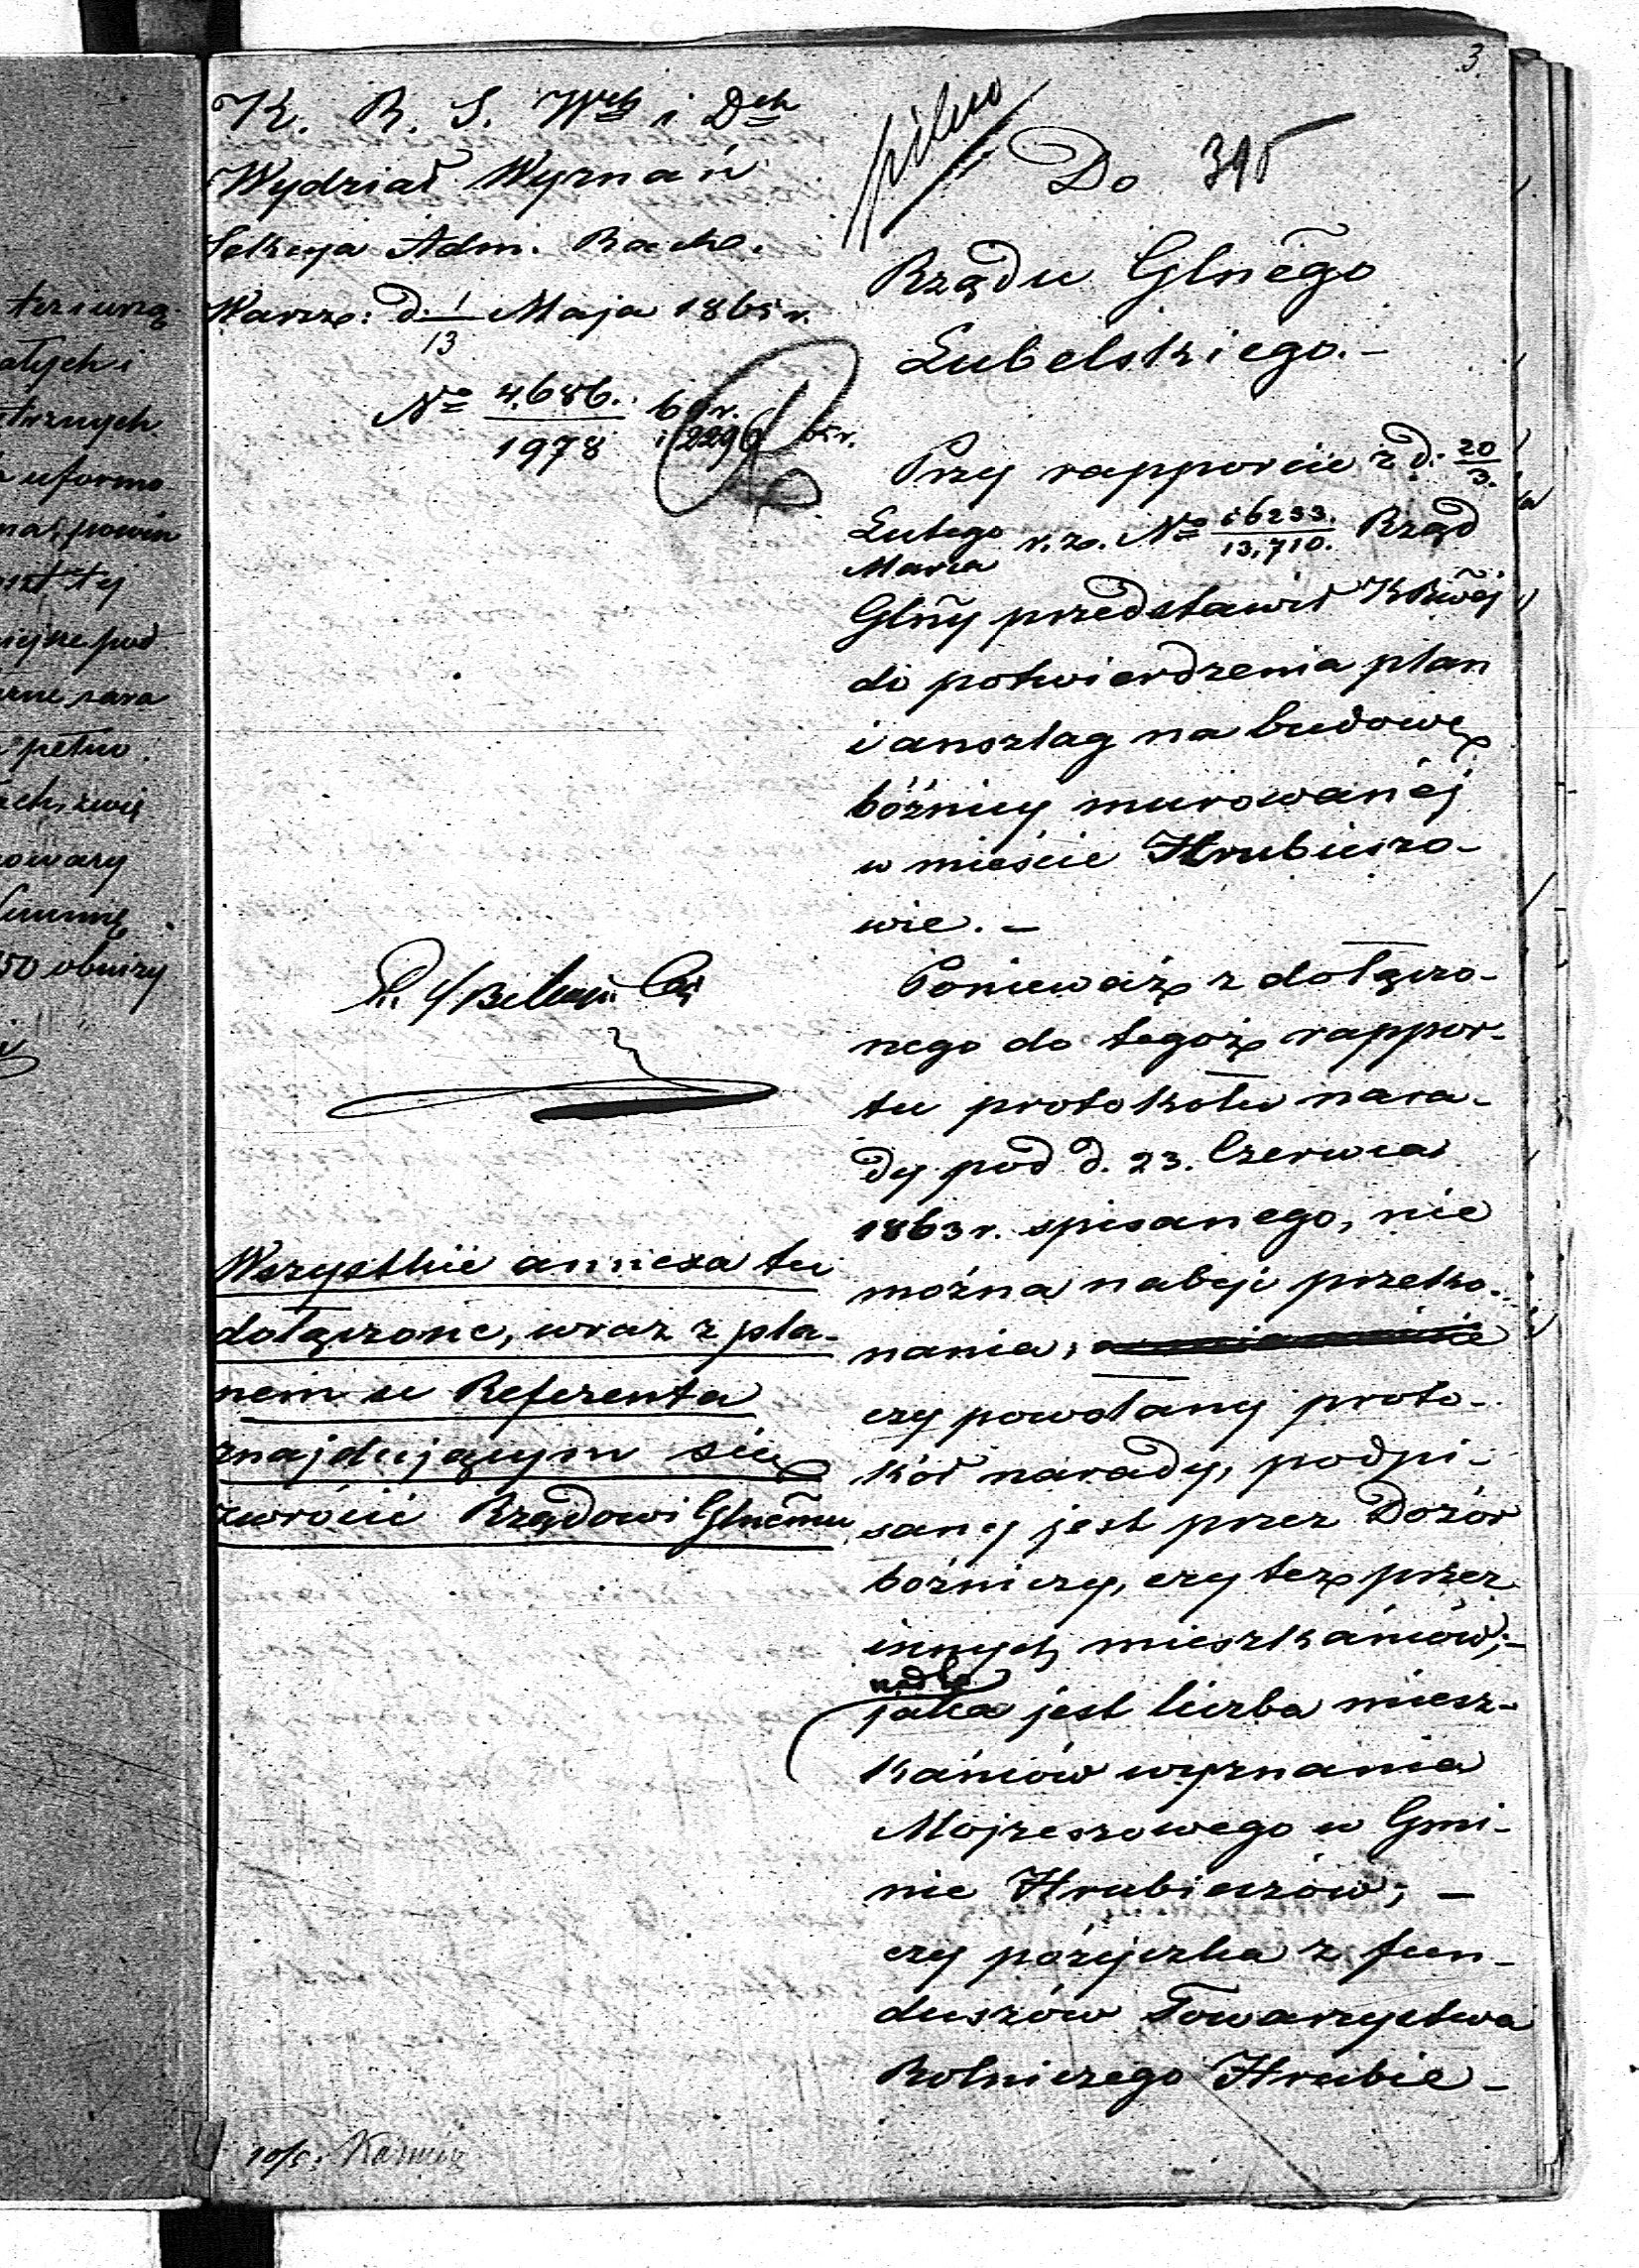 3.
K. R. S. Wch i Dch
Wydział Wyznań
Sekcya Adm. Rach.
Warsz: d. 1/13 Maja 1865 r.
No 4,686./1978
pilno
Do 395
Rządu Glnego
Lubelskiego.-
Przy rapporcie z d. 20/3.
Lutego/Marca r. z. No 16233./13,710. Rząd
Glny przedstawił KRwej
do potwierdzenia plan
i anszlag na budowę
bóżnicy murowanéj
w mieście Hrubieszo-
wie.-
Ponieważ z dołączo-
nego do tegoż rappor-
tu protokołu nara-
dy pod d. 23. Czerwca
1863 r. spisanego, nie
można nabyć przeko-
nania,
czy powołany proto-
kół narady, podpi-
sany jest przez Dozór
bóżniczy, czy też przez
innych mieszkańców;-
nadto
jaka jest liczba miesz-
kańców wyznania
Mojżeszowego w Gmi-
nie Hrubieszów;-
czy pożyczka z fun-
duszów Towarzystwa
Rolniczego Hrubie-
Wszystkie annexa tu
dołączone, wraz z pla-
nem u Referenta
znajdującym się
zwrócić Rządowi Glnemu
10/5.
tych i
trznych
uformo
powin
tej
pod
50 obniży